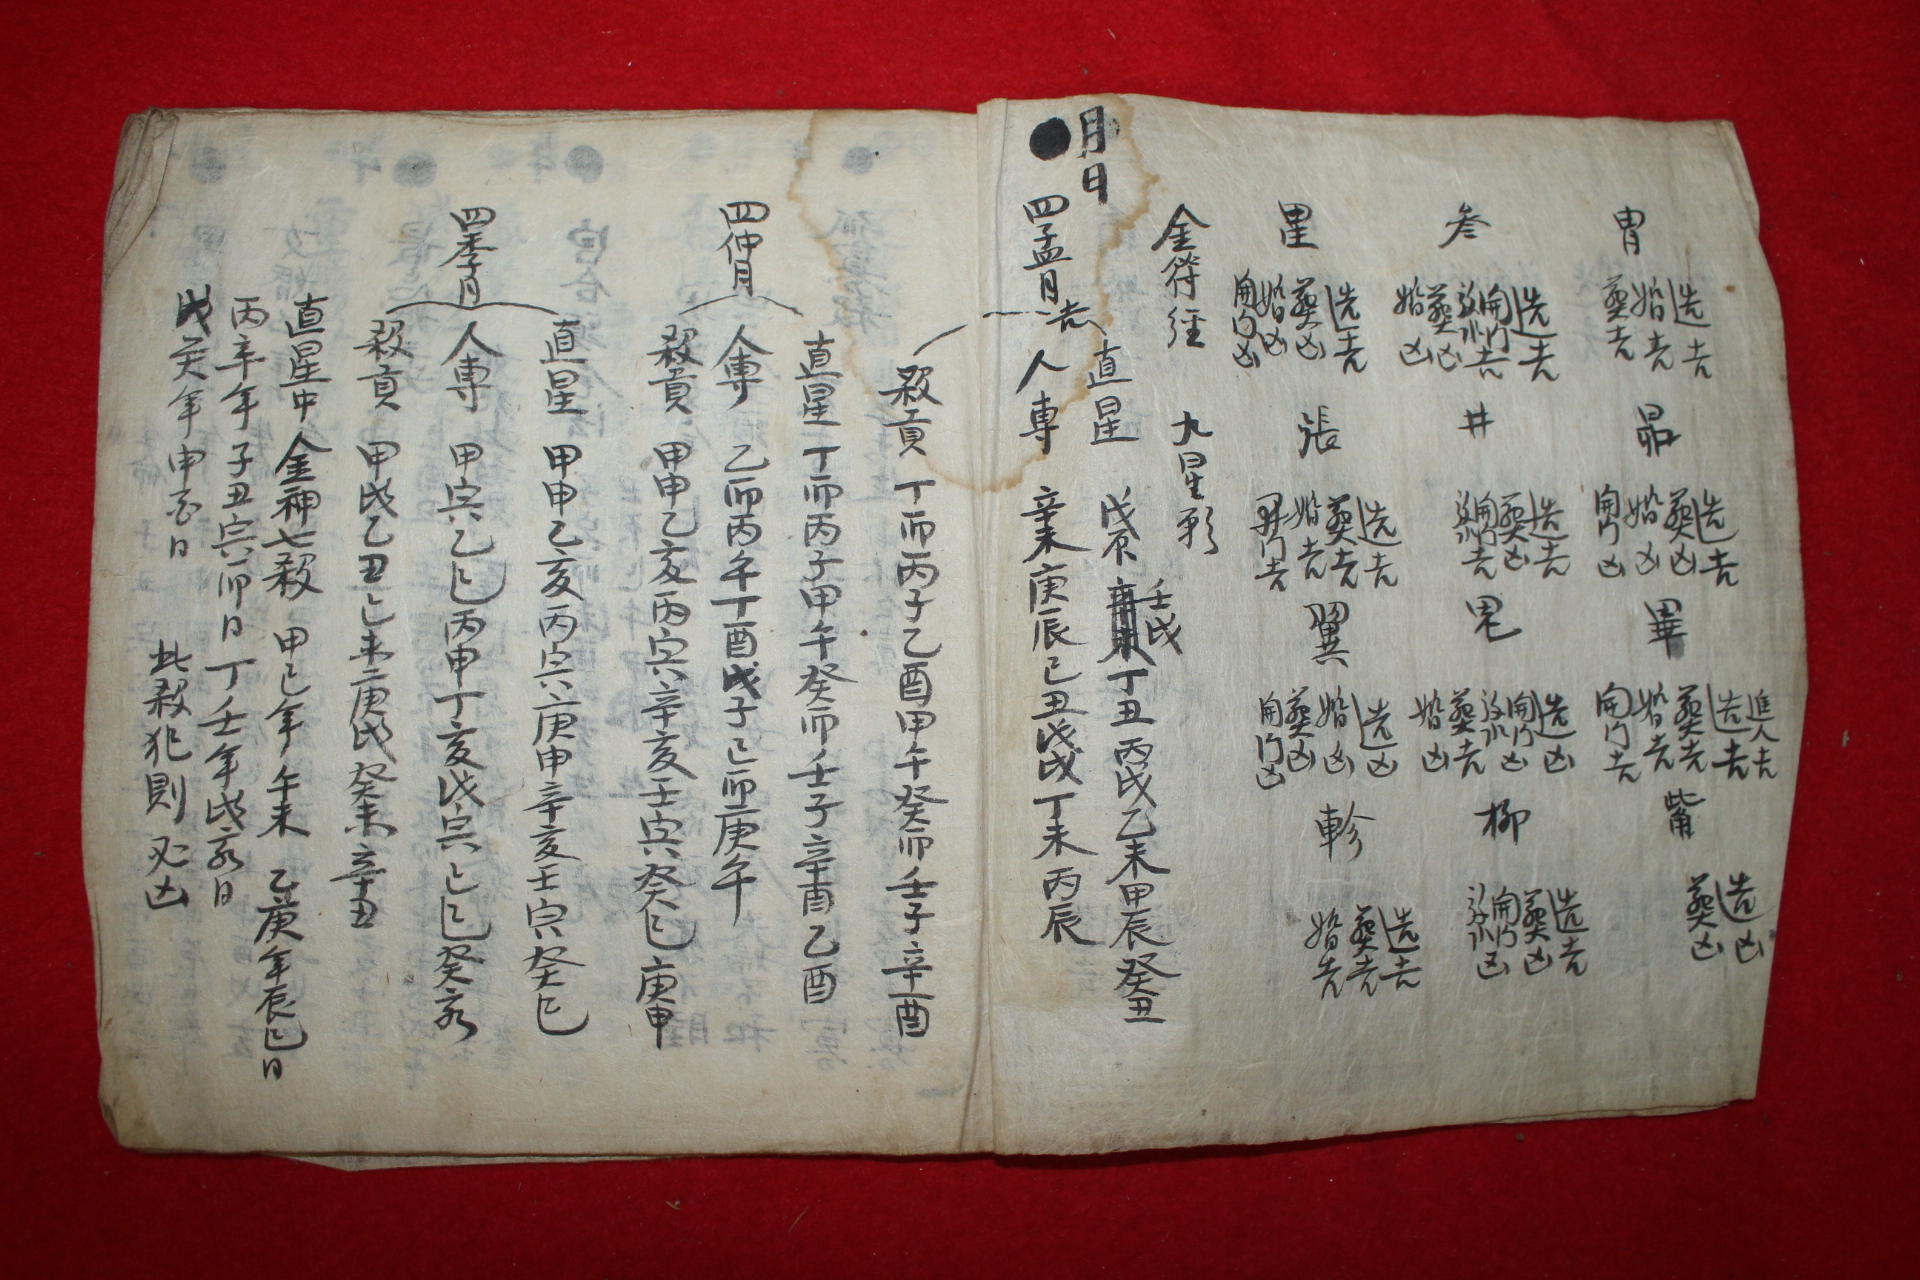 胃 造吉 婚吉 葬吉
昴 造吉 葬凶 婚凶 開門凶
畢 進人吉 造吉 葬吉 婚吉 開門吉
觜 造凶 葬凶
参 造吉 開門放水吉 葬凶 婚凶
井 造吉 葬凶 開門放水吉
鬼 造凶 開門放水凶 葬吉 婚凶
柳 造吉 葬凶 開門放水凶
星 造吉 葬凶 婚凶 開門凶
張 造吉 葬吉 婚吉 開門吉
翼 造凶 婚凶 葬凶 開門凶
軫 造吉 葬吉 婚吉
金符経 九星
月日
四孟月吉
直星 戊辰 壬戌 丁丑 丙戌 乙未 甲辰 癸丑
人專 辛未 庚辰 己丑 戊戌 丁未 丙辰
殺貢 丁卯 丙子 乙酉 甲午 癸卯 壬子 辛酉
四仲月
直星 丁卯 丙子 甲午 癸卯 壬子 辛酉 乙酉
人專 乙卯 丙午 丁酉 戊子 己卯 庚午
殺貢 甲申 乙亥 丙寅 辛亥 壬寅 癸巳 庚申
四季月
直星 甲申 乙亥 丙寅 庚申 辛亥 壬寅 癸巳
人專 甲寅 乙巳 丙申 丁亥 戊寅 己巳 癸亥
殺貢 甲戌 乙丑 己未 庚戌 癸未 辛丑
直星中金神七殺 甲己年午未 乙庚年辰巳日
丙辛年子丑寅卯日 丁壬年戌亥日
戊癸年申酉日 此殺犯則必凶